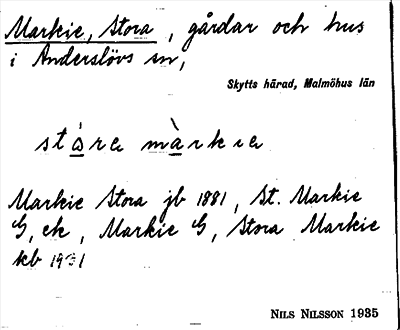 Markie, Stora, gårdar och hus
i Anderslövs sn,
Skytts härad, Malmöhus län
stora màrkıe
Markie Stora jb 1881, St. Markie
G, ek, Markie G, Stora Markie
kb 1931
NILS NILSSON 1935